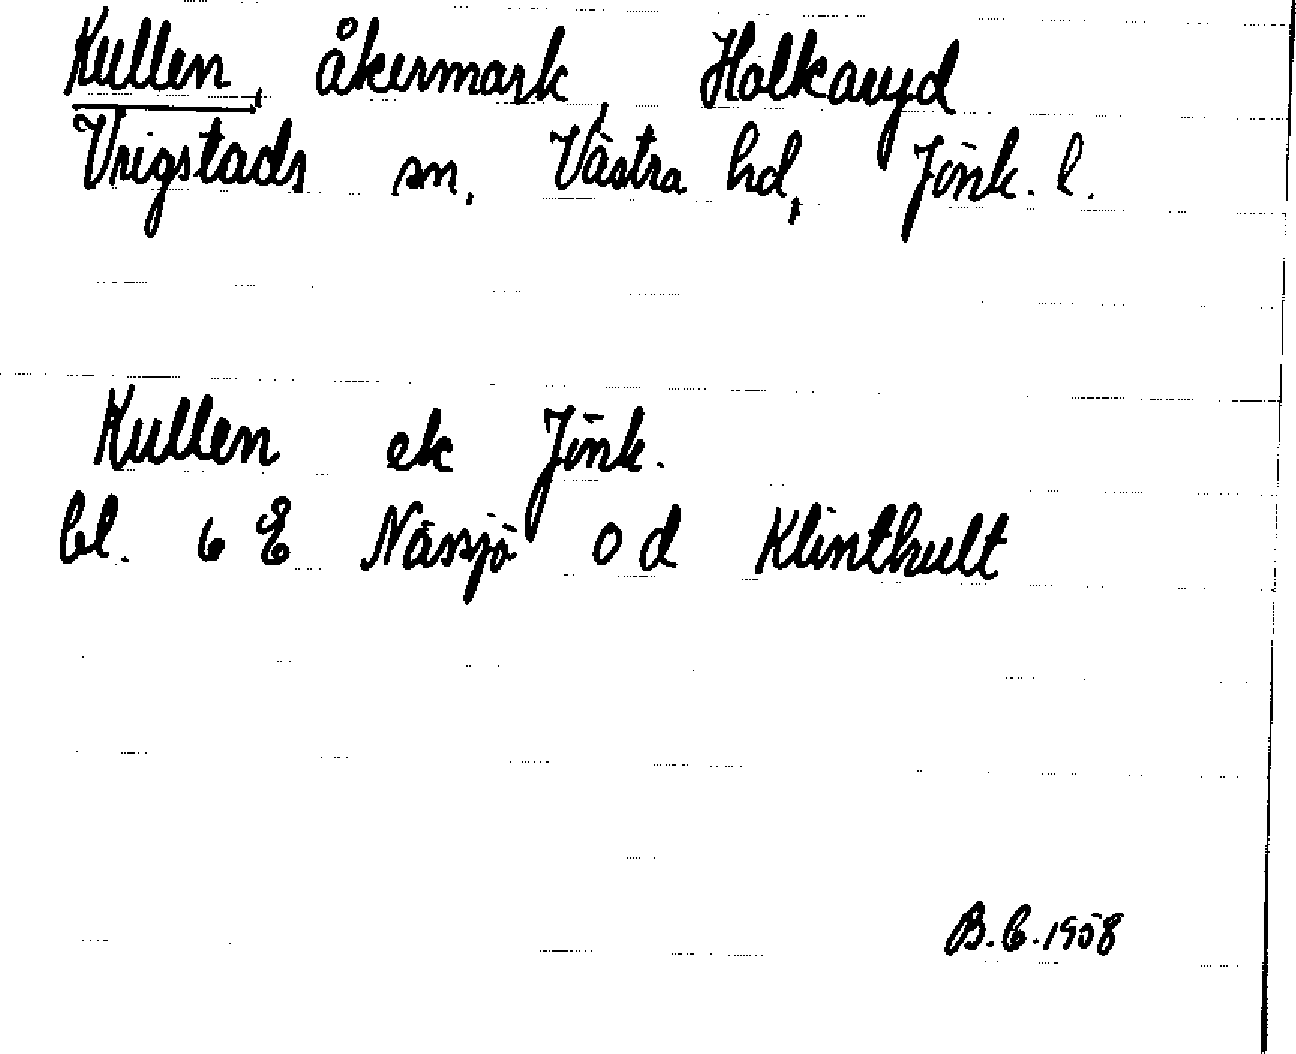 Kullen, åkermark, Holkaryd
Vrigstads sn, Västra hd, Jönk. l.
Kullen ek Jönk.
bl. 6 E Nässjö 0 d Klinthult
B.C. 1958